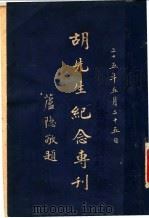 二十五年五月二十五日
胡先生紀念專刊
蘆隱敬題